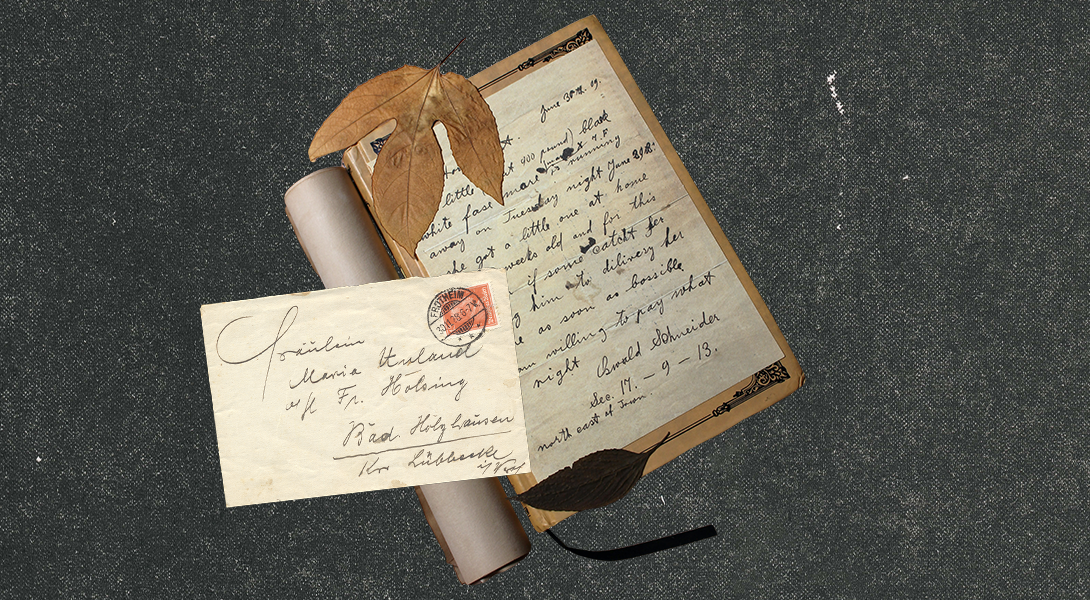 June 30th. 09.
little 900 pound) black
white fase mare is running
away on Tuesday night June 29th.
she got a little one at home
weeks old and for this
if some catcht her
him to dilivery her
as soon as bossible
willing to pay what
night Oswald Schneider
Sec. 17. – 9 – 13.
north east of Town.
FROTHEIM
Fräulein
Maria Ursland
Fr. Hölsing
Bad. Holzhausen
Kr. Lübbecke
i/Westf